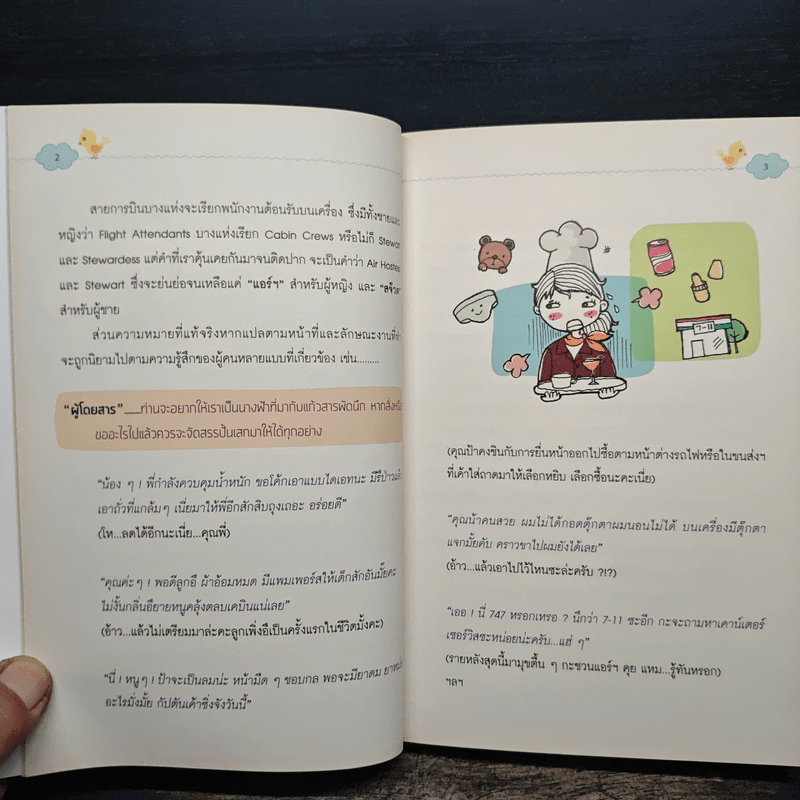 2
สายการบินบางแห่งจะเรียกพนักงานต้อนรับบนเครื่อง ซึ่งมีทั้งชายและ
หญิงว่า Flight Attendants บางแห่งเรียก Cabin Crews หรือไม่ก็ Stewart
และ Stewardess แต่คำที่เราคุ้นเคยกันมาจนติดปาก จะเป็นคำว่า Air Hostess
และ Stewart ซึ่งจะย่นย่อจนเหลือแค่ "แอร์ฯ" สำหรับผู้หญิง และ "สจ๊วต"
สำหรับผู้ชาย
ส่วนความหมายที่แท้จริงหากแปลตามหน้าที่และลักษณะงานที่ทำ
จะถูกนิยามไปตามความรู้สึกของผู้คนหลายแบบที่เกี่ยวข้อง เช่น.........
"ผู้โดยสาร"......ท่านจะอยากให้เราเป็นนางฟ้าที่มากับแก้วสารพัดนึก หากสั่งหรือ
ขออะไรไปแล้วควรจะจัดสรรปั้นเสกมาให้ได้ทุกอย่าง
"น้อง ๆ ! พี่กำลังควบคุมน้ำหนัก ขอโค้กเอาแบบไดเอทนะ มีรึป่าวแล้ว
เอาถั่วที่แกล้มๆ เนี่ยมาให้พี่อีกสักสิบถุงเถอะ อร่อยดี"
(โห...ลดได้อีกนะเนี่ย...คุณพี่)
"คุณค่ะๆ ! พอดีลูกอึ ผ้าอ้อมหมด มีแพมเพอร์สให้เด็กสักอันมั้ยคะ
ไม่งั้นกลิ่นอึยายหนูคลุ้งตลบเคบินแน่เลย"
(อ้าว...แล้วไม่เตรียมมาล่ะคะลูกเพิ่งอึเป็นครั้งแรกในชีวิตมั้งคะ)
"นี่ ! หนูๆ ! ป้าจะเป็นลมน่ะ หน้ามืด ๆ ชอบกล พอจะมียาดม ยาหม่อง
อะไรมั่งมั้ย กัปตันเค้าซิ่งจังวันนี้"
3
7-11
(คุณป้าคงชินกับการยื่นหน้าออกไปซื้อตามหน้าต่างรถไฟหรือในขนส่งฯ
ที่เค้าใส่ถาดมาให้เลือกหยิบ เลือกซื้อนะคะเนี่ย)
"คุณน้าคนสวย ผมไม่ได้กอดตุ๊กตาผมนอนไม่ได้ บนเครื่องมีตุ๊กตา
แจกมั้ยคับ คราวขาไปผมยังได้เลย"
(อ้าว...แล้วเอาไปไว้ไหนซะล่ะครับ ?!?)
"เออ ! นี่ 747 หรอกเหรอ ? นึกว่า 7-11 ซะอีก กะจะถามหาเคาน์เตอร์
เซอร์วิสซะหน่อยน่ะครับ...แฮ่ ๆ"
(รายหลังสุดนี้มามุขตื้น ๆ กะชวนแอร์ฯ คุย แหม...รู้ทันหรอก)
ฯลฯ